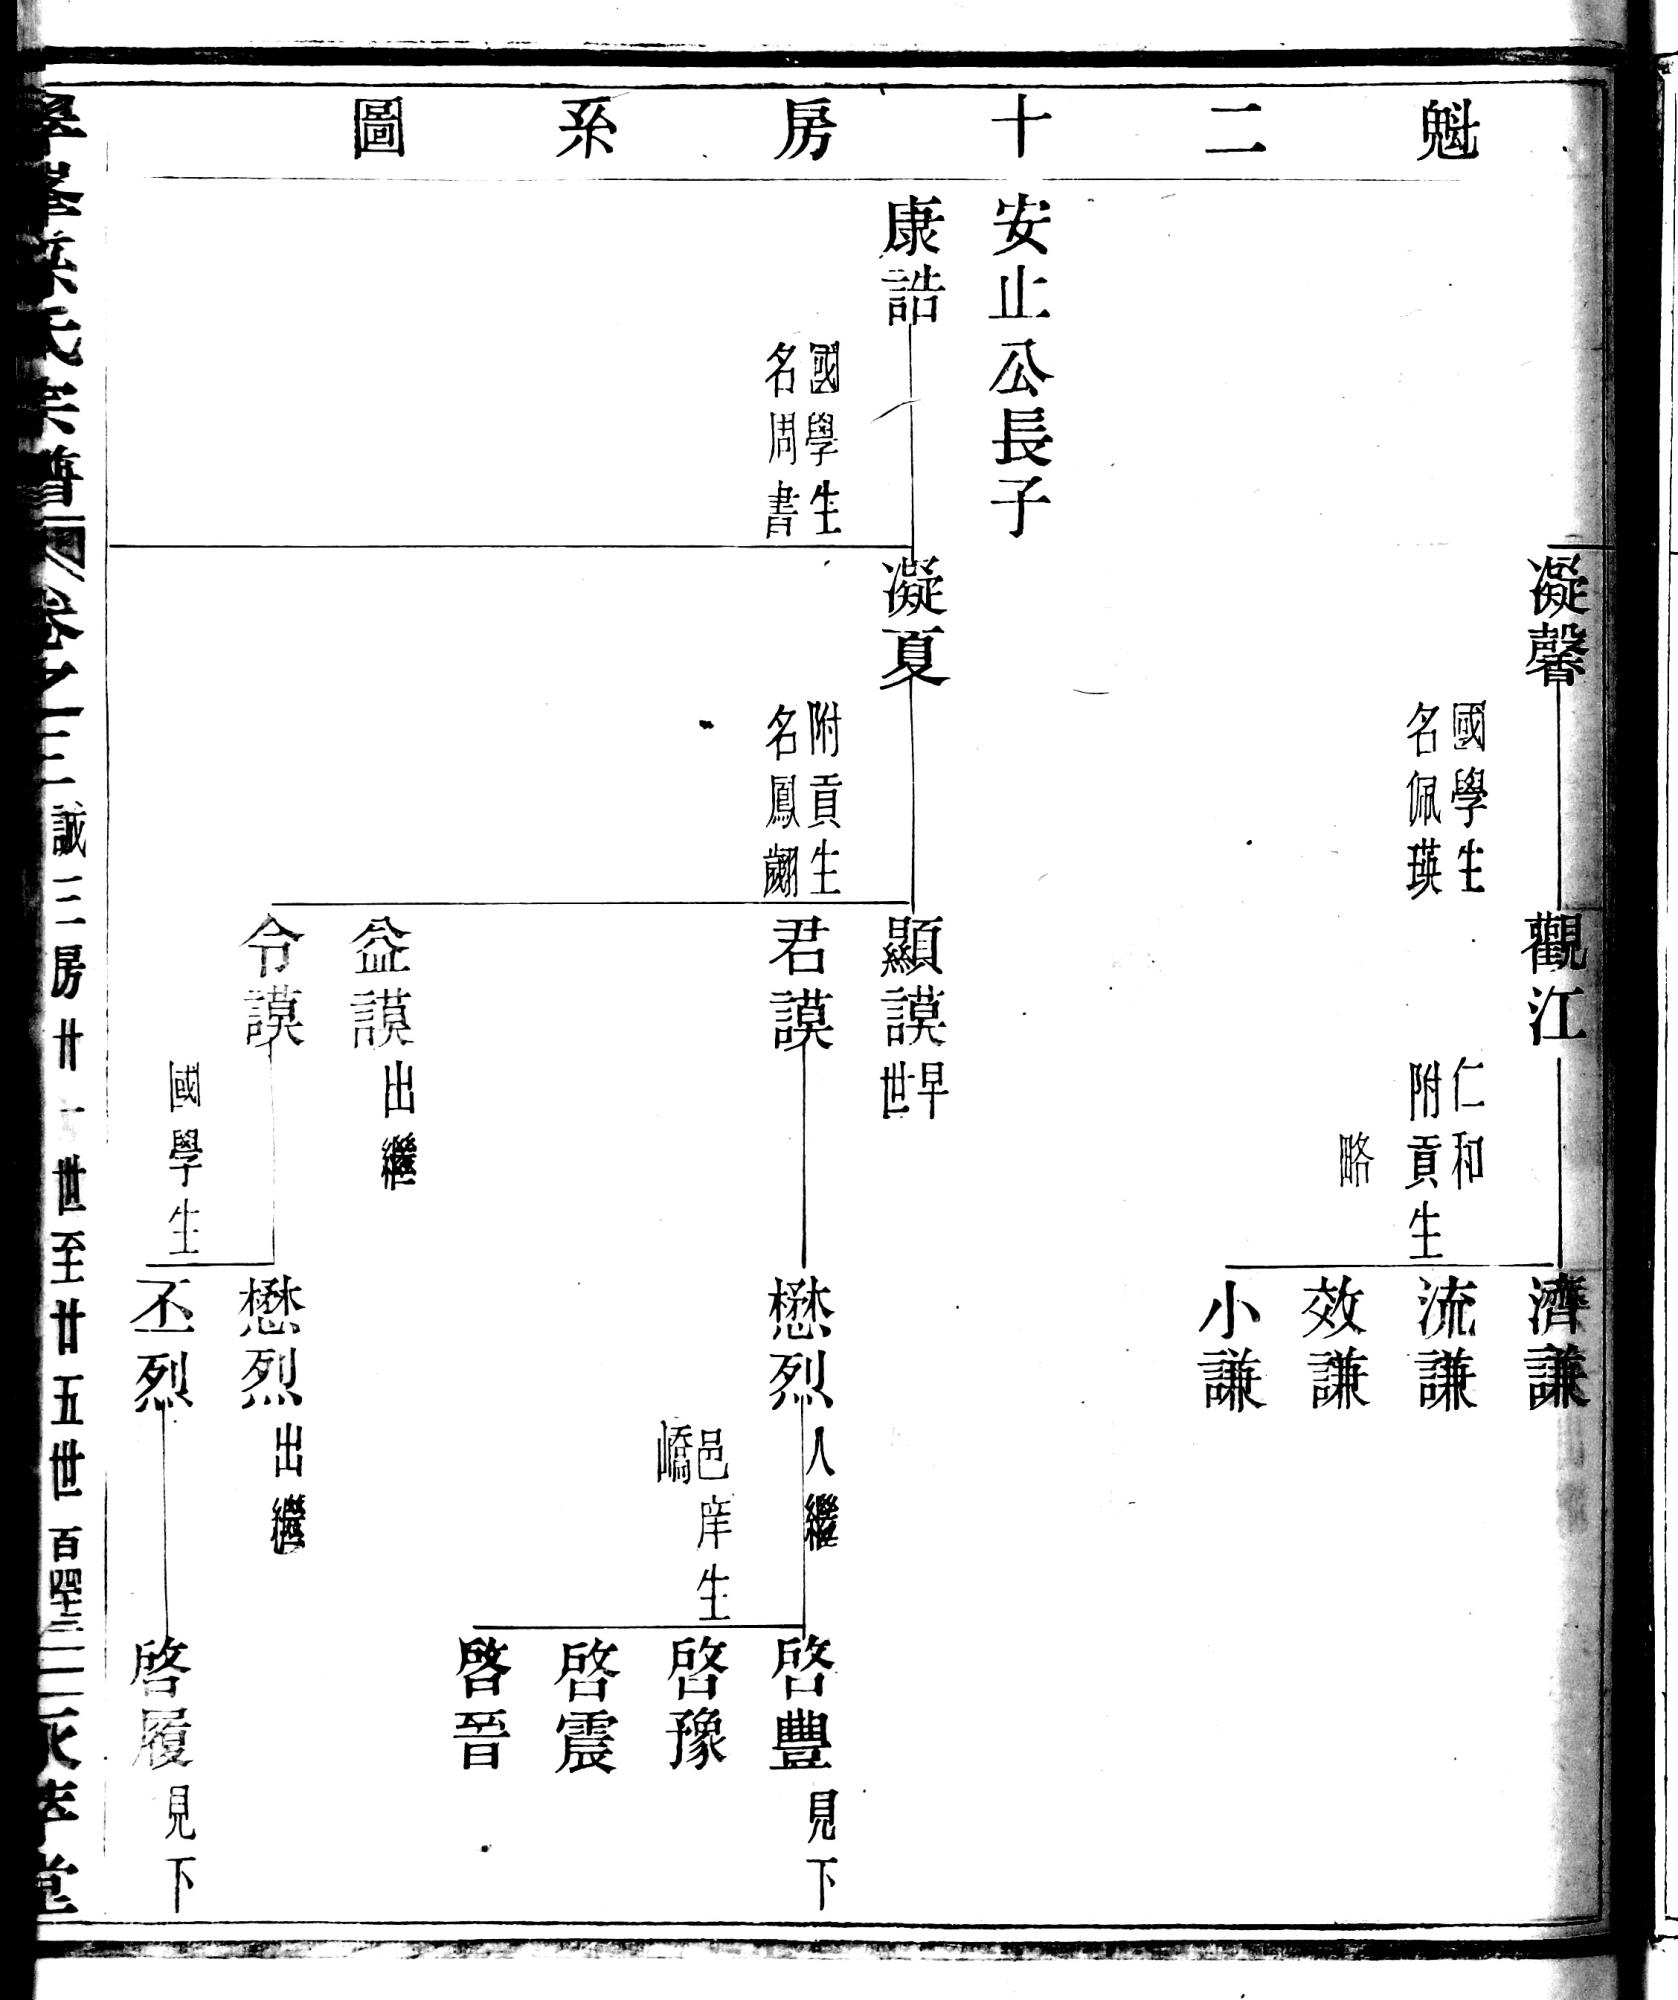 魁二十房系圖
凝馨
國學生
名佩瑛
觀江
仁和
附貢生
略
濟謙
流謙
效謙
小謙
安止公長子
康誥
國學生
名周書
凝夏
附貢生
名鳳翽
顯謨
早
世
君謨
懋烈
入繼
邑庠生
嶠
啓豐
見下
啓豫
啓震
啓晉
益謨
出繼
令謨
國學生
懋烈
出繼
丕烈
啓履
見下
氏宗譜
卷之三
誠三房廿一世至廿五世
堂